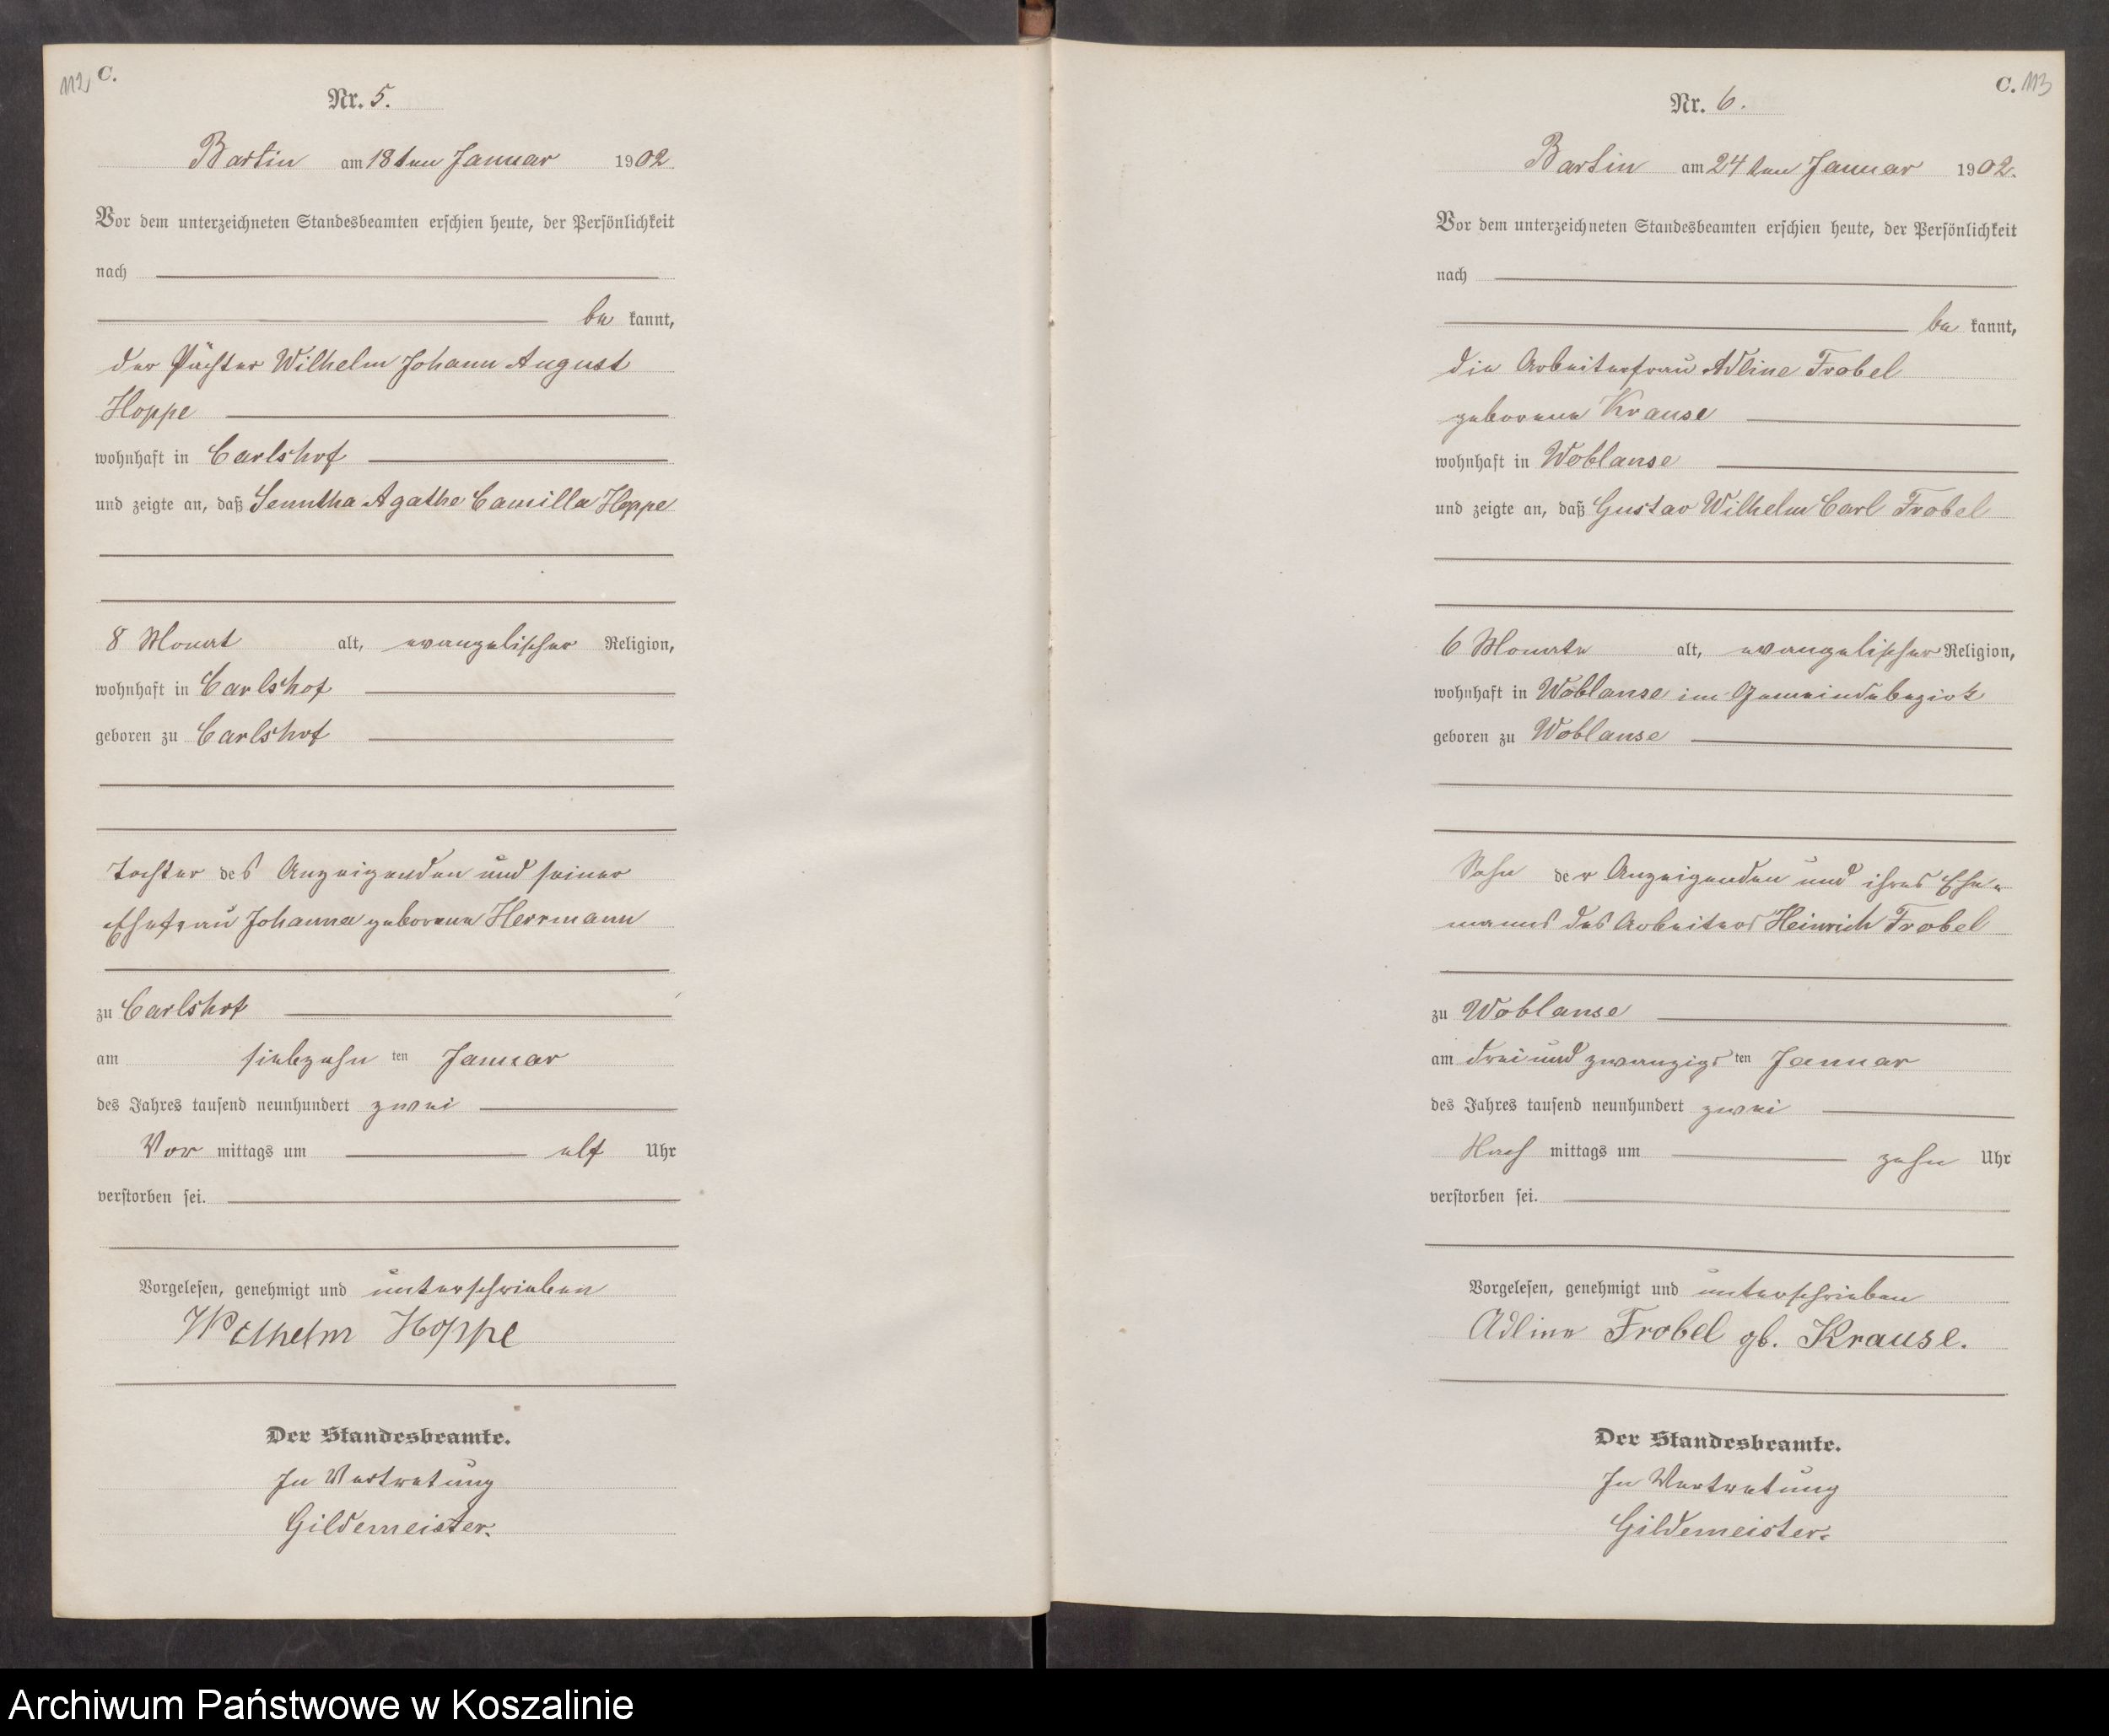 112 C.
Nr. 5.
Bartin am 18ten Januar 1902.
Vor dem unterzeichneten Standesbeamten erschien heute, der Persönlichkeit
nach
be kannt,
der Pächter Wilhelm Johann August
Hoppe
wohnhaft in Carlshof
und zeigte an, daß Agathe Camilla Hoppe
8 Monat alt, evangelischer Religion,
wohnhaft in Carlshof
geboren zu Carlshof
Tochter des Anzeigenden und seiner
Ehefrau Johanna geborene Herrmann
zu Carlshof
am siebzehn ten Januar
des Jahres tausend neunhundert zwei
Vor mittags um elf Uhr
verstorben sei.
Vorgelesen, genehmigt und unterschrieben
Wilhelm Hoppe
Der Standesbeamte.
In Vertretung
Gildemeister.
C. 113
Nr. 6.
Bartin am 24ten Januar 1902.
Vor dem unterzeichneten Standesbeamten erschien heute, der Persönlichkeit
nach
be kannt,
die Arbeiterfrau Adline Frobel
geborene Krause
wohnhaft in Woblanse
und zeigte an, daß Gustav Wilhelm Carl Frobel
6 Monate alt, evangelischer Religion,
wohnhaft in Woblanse im Gemeindebezirk
geboren zu Woblanse
Sohn der Anzeigenden und ihres Ehe-
manns des Arbeiters Heinrich Frobel
zu Woblanse
am drei und zwanzigs ten Januar
des Jahres tausend neunhundert zwei
Nach mittags um zehn Uhr
verstorben sei.
Vorgelesen, genehmigt und unterschrieben
Adline Frobel gb. Krause.
Der Standesbeamte.
In Vertretung
Gildemeister.
Archiwum Państwowe w Koszalinie